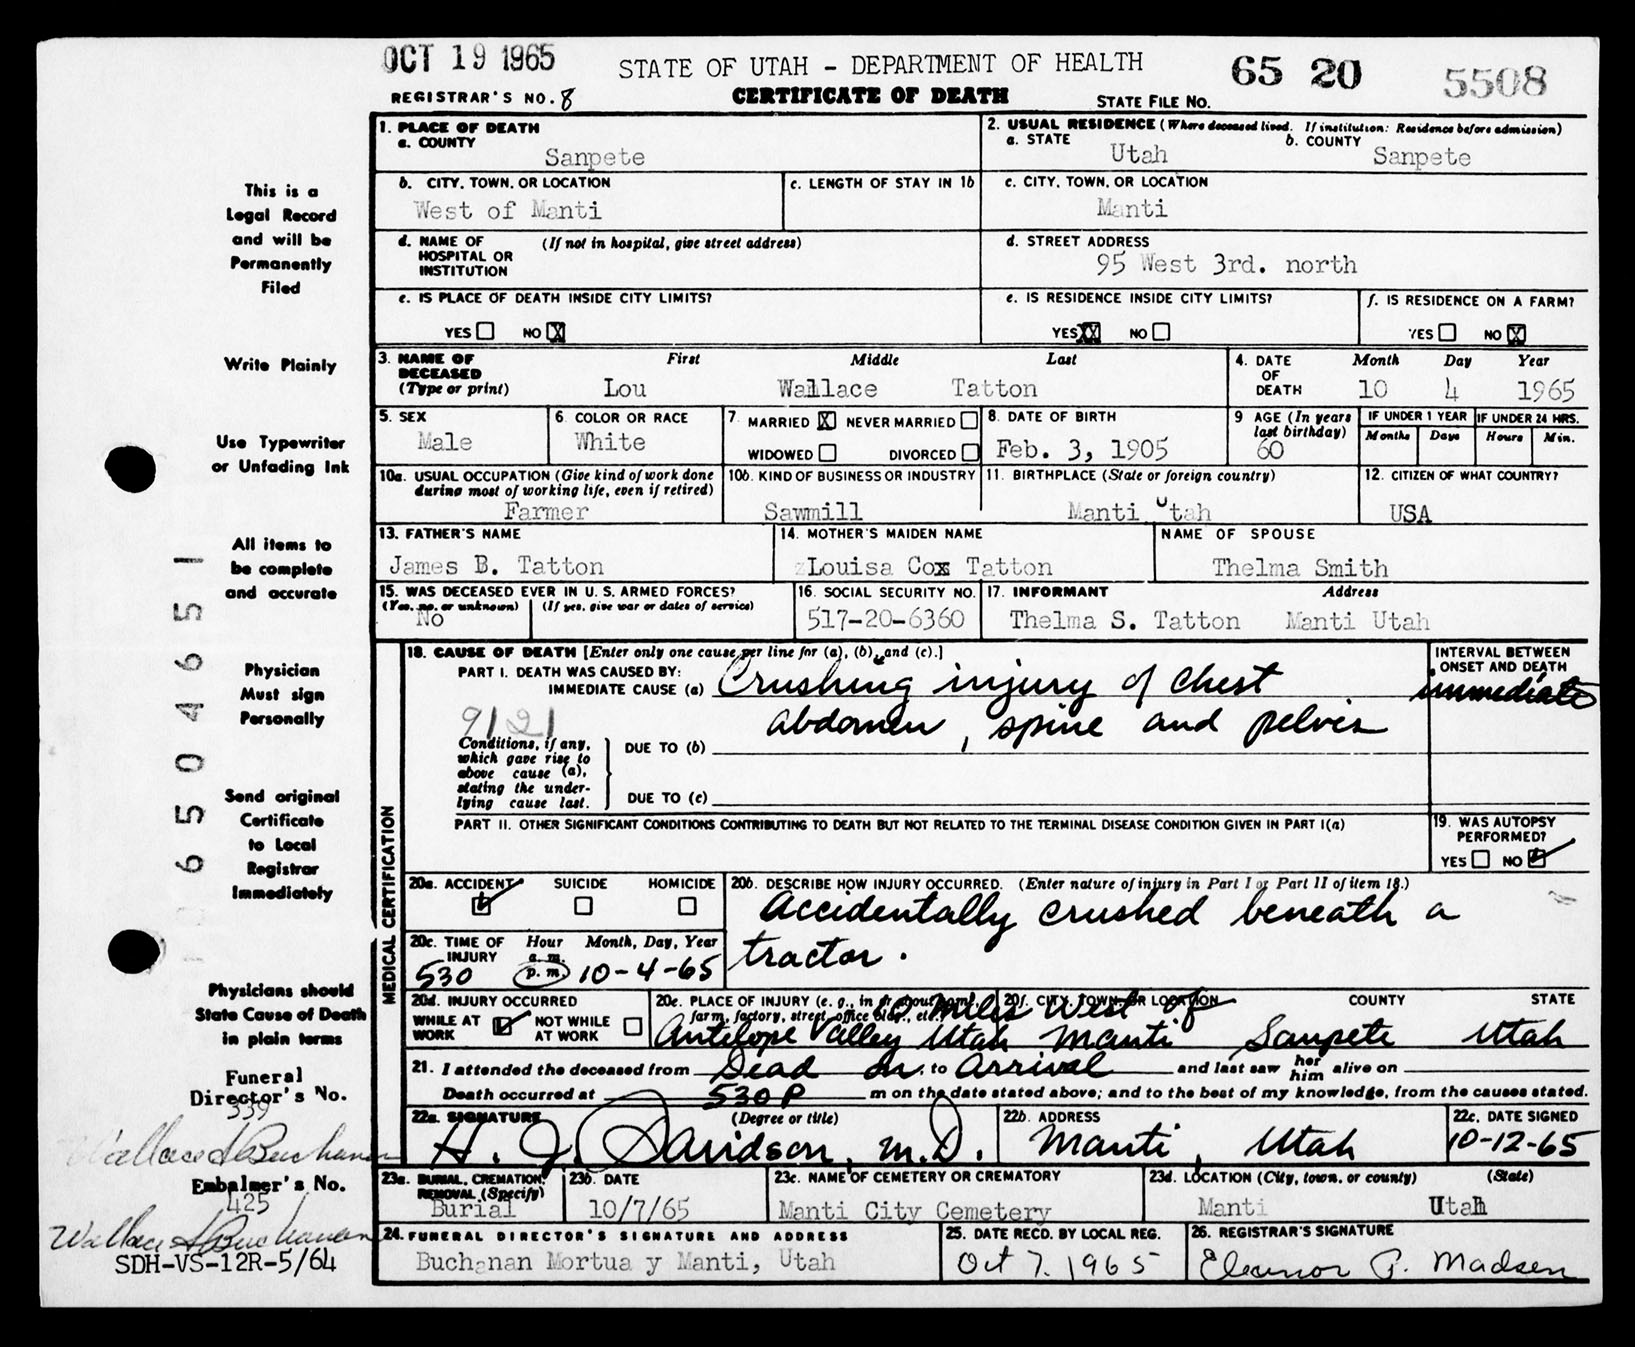 OCT 19 1965
STATE OF UTAH - DEPARTMENT OF HEALTH
65 20 5508
REGISTRAR'S NO. 8
CERTIFICATE OF DEATH
STATE FILE NO.
This is a
Legal Record
and will be
Permanently
Filed
Write Plainly
Use Typewriter
or Unfading Ink
All items to
be complete
and accurate
Physician
Must sign
Personally
Send original
Certificate
to Local
Registrar
Immediately
Physicians should
State Cause of Death
in plain terms
Funeral
Director's No.
339
Wallace S Buchanan
Embalmer's No.
425
Wallace S Buchanan
SDH-VS-12R-5/64
65046551
1. PLACE OF DEATH
a. COUNTY
Sanpete
2. USUAL RESIDENCE (Where deceased lived. If institution: Residence before admission)
a. STATE b. COUNTY
Utah Sanpete
b. CITY, TOWN, OR LOCATION
West of Manti
c. LENGTH OF STAY IN 1b
c. CITY, TOWN, OR LOCATION
Manti
d. NAME OF (If not in hospital, give street address)
HOSPITAL OR
INSTITUTION
d. STREET ADDRESS
95 West 3rd. north
e. IS PLACE OF DEATH INSIDE CITY LIMITS?
YES NO X
e. IS RESIDENCE INSIDE CITY LIMITS?
YES XX NO
f. IS RESIDENCE ON A FARM?
YES NO X
3. NAME OF First Middle Last
DECEASED
(Type or print) Lou Wallace Tatton
4. DATE Month Day Year
OF
DEATH 10 4 1965
5. SEX
Male
6. COLOR OR RACE
White
7. MARRIED X NEVER MARRIED
WIDOWED DIVORCED
8. DATE OF BIRTH
Feb. 3, 1905
9 AGE (In years
last birthday)
60
IF UNDER 1 YEAR IF UNDER 24 HRS.
Months Days Hours Min.
10a. USUAL OCCUPATION (Give kind of work done
during most of working life, even if retired)
Farmer
10b. KIND OF BUSINESS OR INDUSTRY
Sawmill
11. BIRTHPLACE (State or foreign country)
Manti Utah
12. CITIZEN OF WHAT COUNTRY?
USA
13. FATHER'S NAME
James B. Tatton
14. MOTHER'S MAIDEN NAME
Louisa Cox Tatton
NAME OF SPOUSE
Thelma Smith
15. WAS DECEASED EVER IN U. S. ARMED FORCES?
(Yes, no, or unknown) (If yes, give war or dates of service)
No
16. SOCIAL SECURITY NO.
517-20-6360
17. INFORMANT Address
Thelma S. Tatton Manti Utah
MEDICAL CERTIFICATION
18. CAUSE OF DEATH [Enter only one cause per line for (a), (b), and (c).]
PART I. DEATH WAS CAUSED BY:
IMMEDIATE CAUSE (a) Crushing injury of chest
abdomen, spine and pelvis
INTERVAL BETWEEN
ONSET AND DEATH
immediate
9121
Conditions, if any,
which gave rise to
above cause (a),
stating the under-
lying cause last.
DUE TO (b)
DUE TO (c)
PART II. OTHER SIGNIFICANT CONDITIONS CONTRIBUTING TO DEATH BUT NOT RELATED TO THE TERMINAL DISEASE CONDITION GIVEN IN PART I(a)
19. WAS AUTOPSY
PERFORMED?
YES NO
20a. ACCIDENT SUICIDE HOMICIDE
20b. DESCRIBE HOW INJURY OCCURRED. (Enter nature of injury in Part I or Part II of item 18.)
Accidentally crushed beneath a
tractor.
20c. TIME OF Hour Month, Day, Year
INJURY a. m.
530 p. m. 10-4-65
20d. INJURY OCCURRED
WHILE AT WORK NOT WHILE AT WORK
20e. PLACE OF INJURY (e. g., in or about home,
farm, factory, street, office bldg., etc.)
Antelope Valley Utah
20f. CITY, TOWN, OR LOCATION COUNTY STATE
60 Miles West of
Manti Sanpete Utah
21. I attended the deceased from Dead on to Arrival and last saw her him alive on
Death occurred at 530 P m on the date stated above; and to the best of my knowledge, from the causes stated.
22a. SIGNATURE (Degree or title)
H. J. Davidson, M.D.
22b. ADDRESS
Manti, Utah
22c. DATE SIGNED
10-12-65
23a. BURIAL, CREMATION,
REMOVAL (Specify)
Burial
23b. DATE
10/7/65
23c. NAME OF CEMETERY OR CREMATORY
Manti City Cemetery
23d. LOCATION (City, town, or county) (State)
Manti Utah
24. FUNERAL DIRECTOR'S SIGNATURE AND ADDRESS
Buchanan Mortua y Manti, Utah
25. DATE RECD. BY LOCAL REG.
Oct 7. 1965
26. REGISTRAR'S SIGNATURE
Eleanor P. Madsen